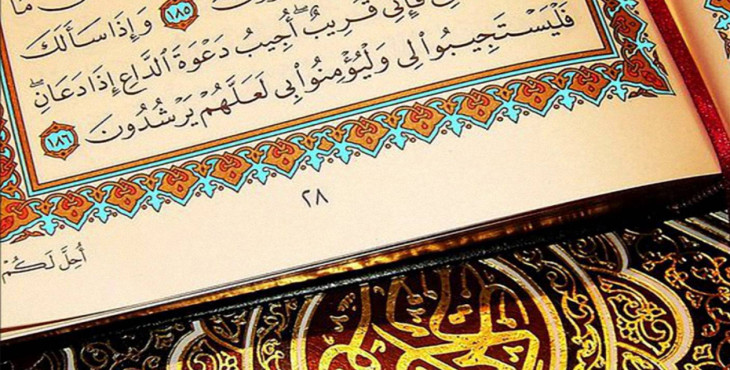 ۝١٨٥ وَإِذَا سَأَلَكَ
فَإِنِّي قَرِيبٌ أُجِيبُ دَعْوَةَ ٱلدَّاعِ إِذَا دَعَانِ
فَلْيَسْتَجِيبُوا۟ لِي وَلْيُؤْمِنُوا۟ بِي لَعَلَّهُمْ يَرْشُدُونَ ۝١٨٦
٢٨
أُحِلَّ لَكُمْ